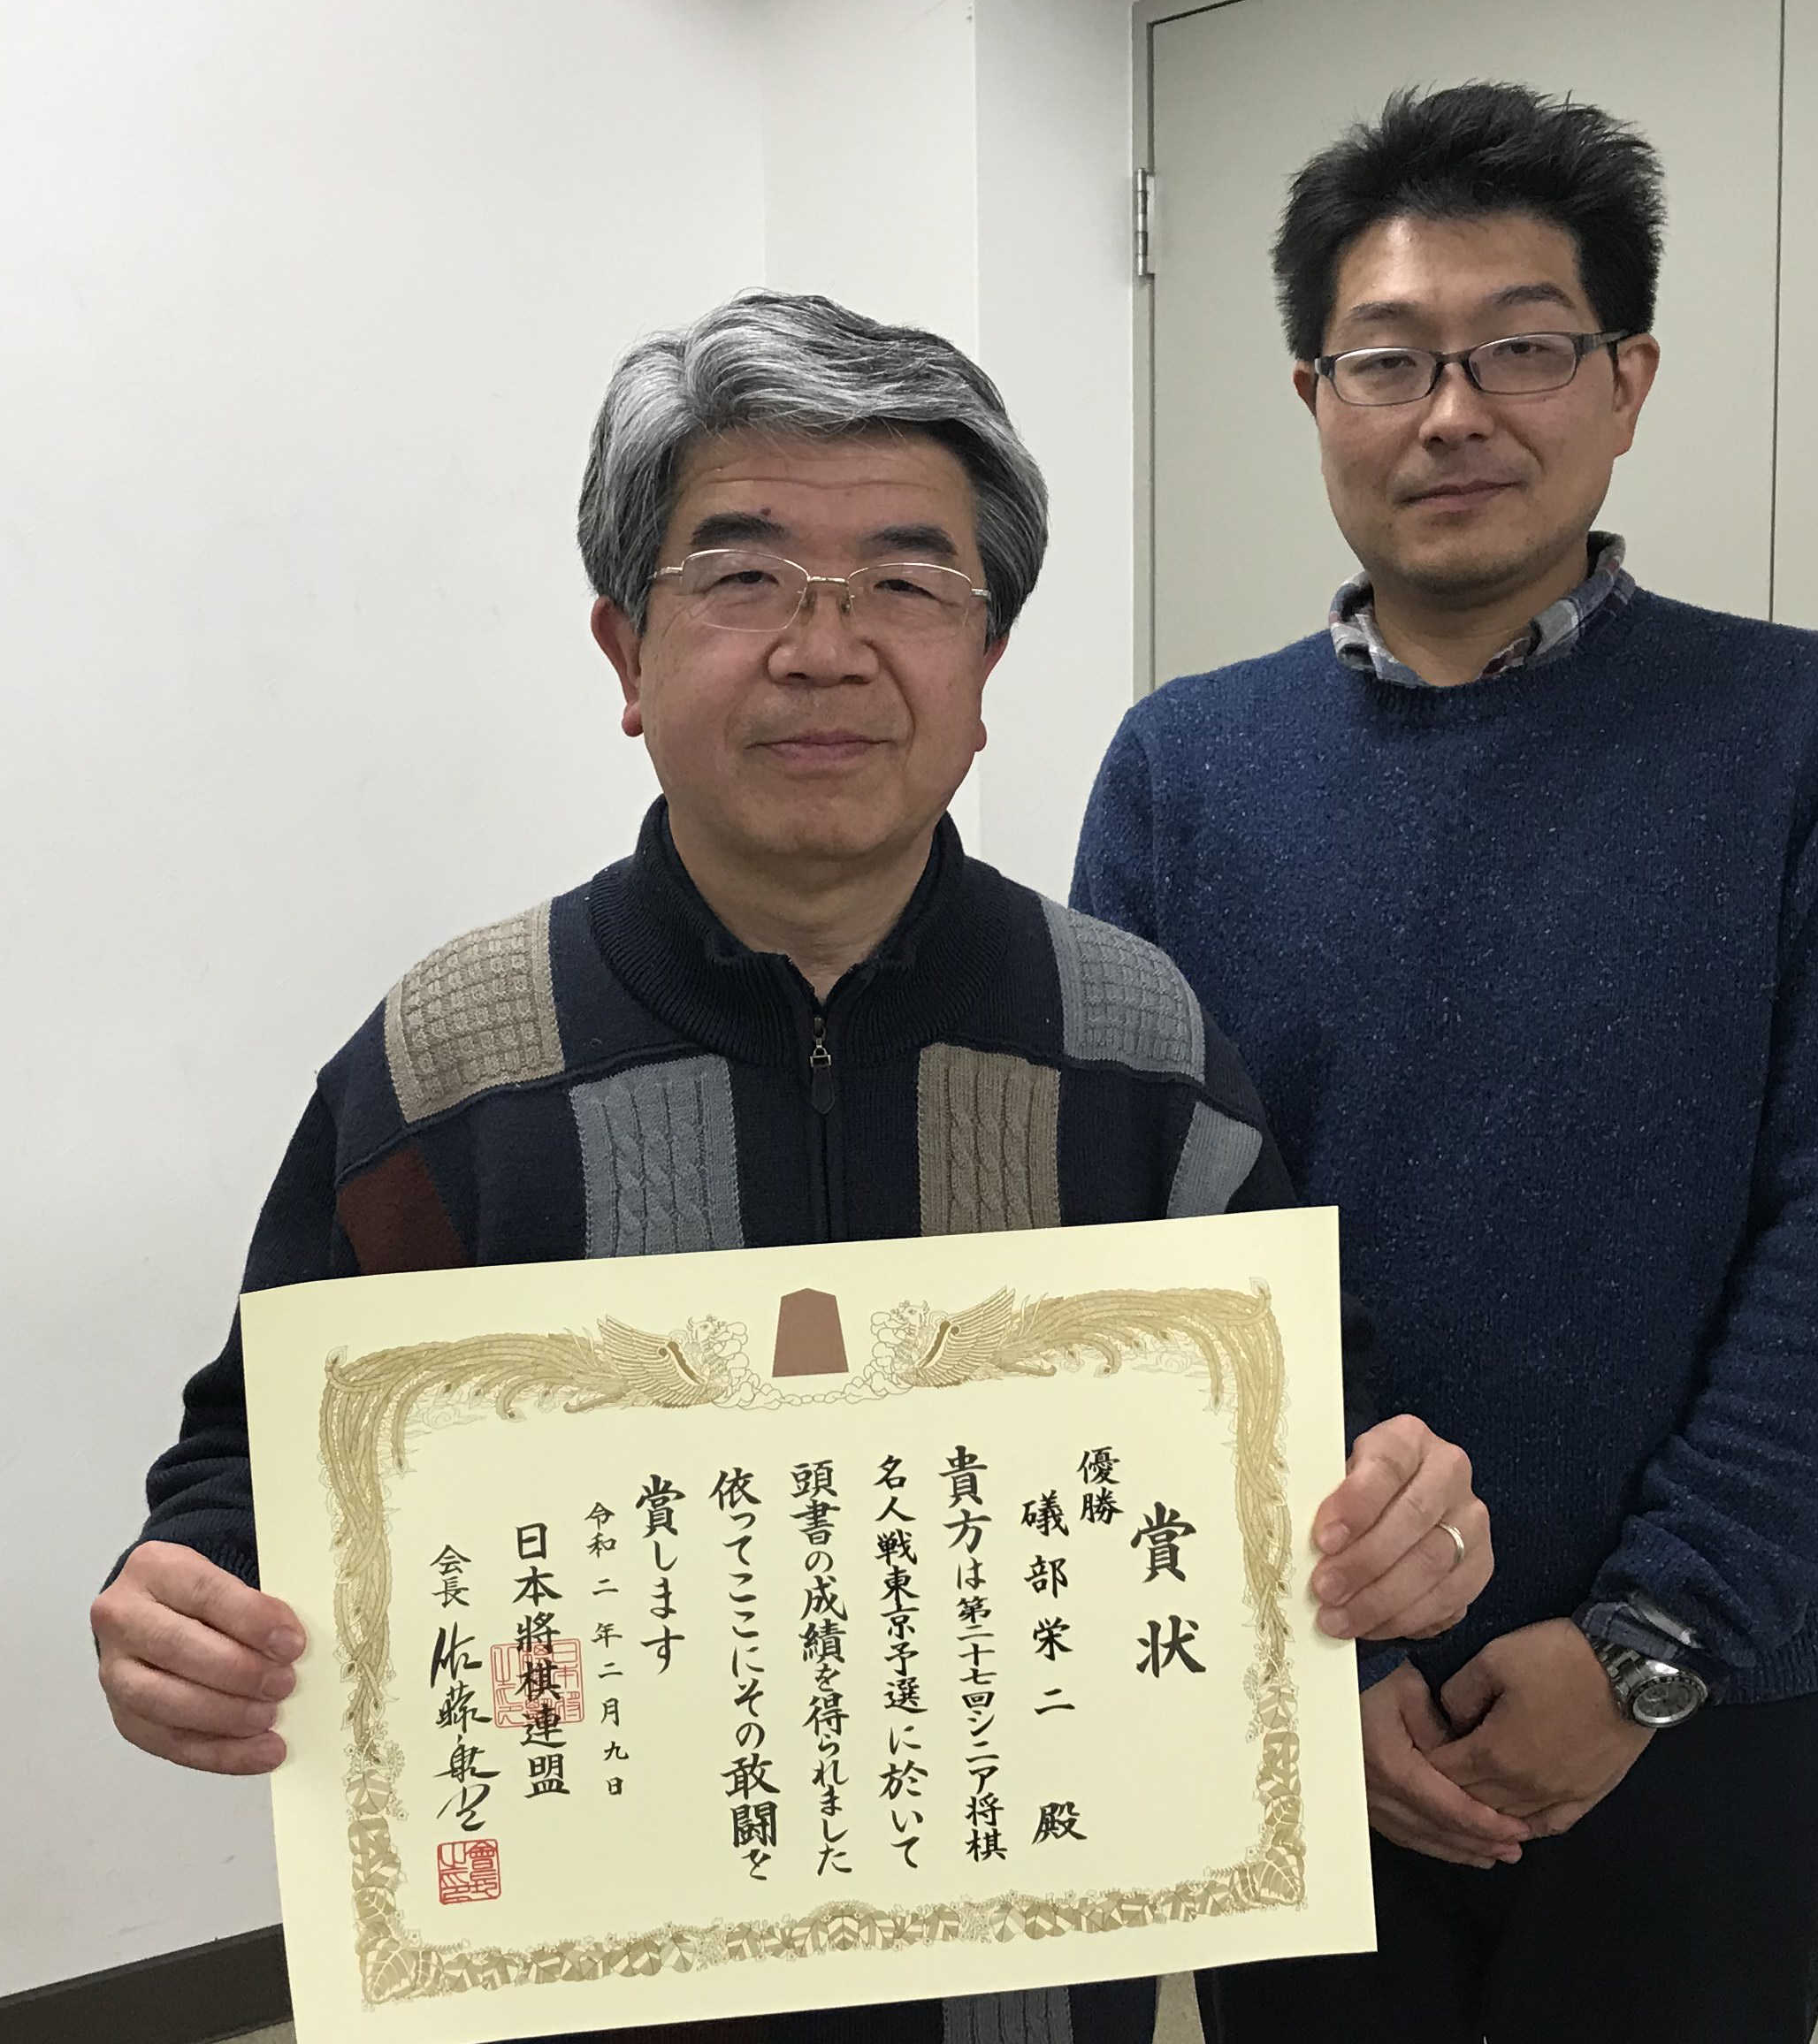 賞状
優勝
礒部栄二 殿
貴方は第二十七回シニア将棋
名人戦東京予選に於いて
頭書の成績を得られました
依ってここにその敢闘を
賞します
令和二年二月九日
日本將棋連盟
会長 佐藤康光